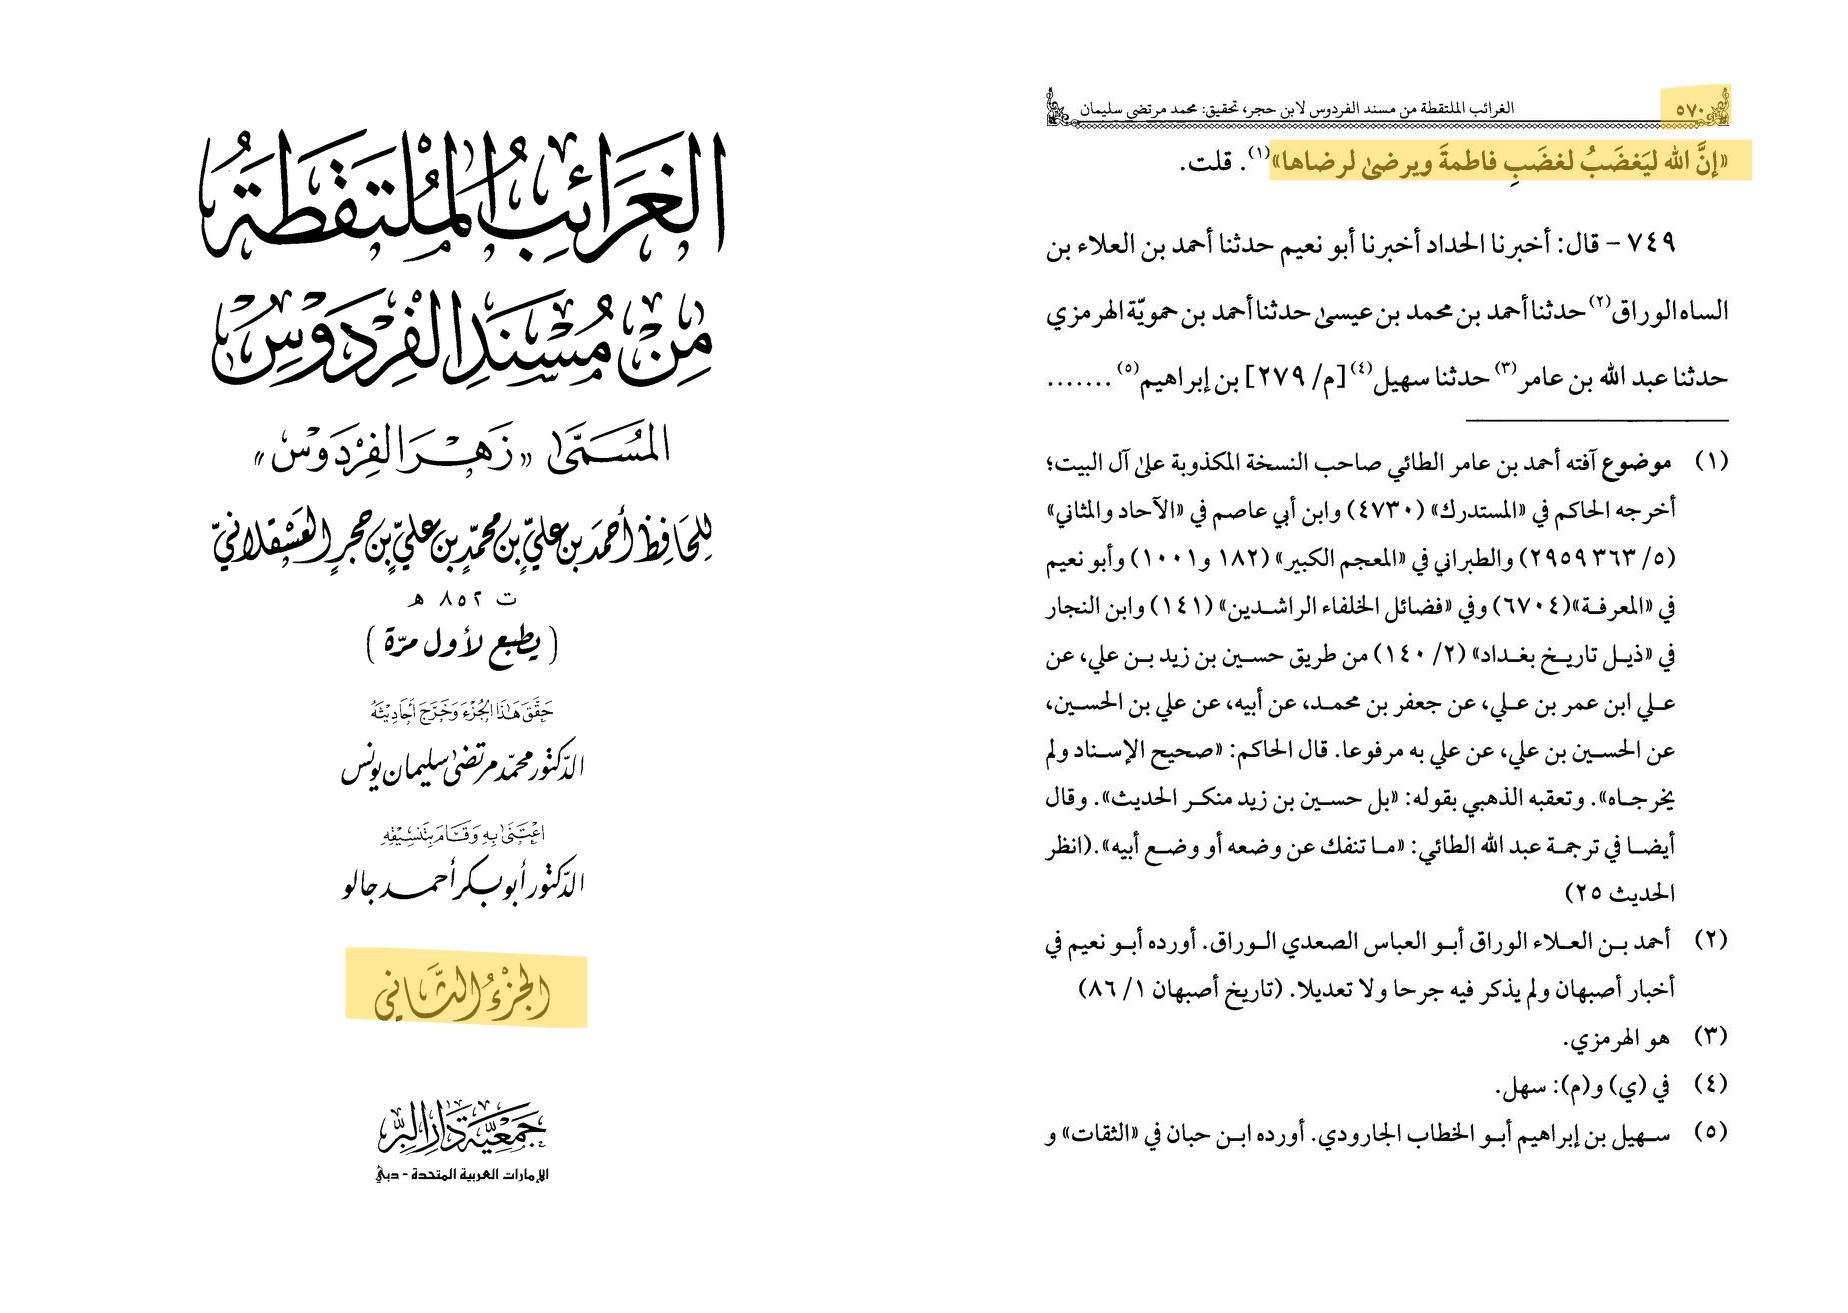 الغَرَائِبُ المُلْتَقَطَةُ
مِنْ مُسْنَدِ الفِرْدَوْسِ
المُسَمَّىٰ «زَهْرَ الفِرْدَوْسِ»
لِلحَافِظِ أَحمَدَ بن عَليِّ بنِ مُحمَّدِ بن عَليِّ بنِ حَجَرٍ العَسْقَلانيِّ
ت ٨٥٢ هـ
( يطبع لأول مرّة )
حَقَّقَ هَٰذَا الجُزْءَ وَخَرَّجَ أَحَادِيثَهُ
الدّكتور محمّد مرتضىٰ سليمان يونس
اعْتَنَىٰ بِهِ وَقَامَ بِتَنْسِيقِهِ
الدّكتور أبو بكر أحمد جالو
الجُزْءُ الثَّانِي
جَمْعِيَّة دَارُ البِرِّ
الإمارات العربية المتحدة - دبي
٥٧٠ الغرائب الملتقطة من مسند الفردوس لابن حجر، تحقيق: محمد مرتضى سليمان
«إنَّ الله ليَغضَبُ لغضَبِ فاطمةَ ويرضىٰ لرضاها»(١). قلت.
٧٤٩ – قال: أخبرنا الحداد أخبرنا أبو نعيم حدثنا أحمد بن العلاء بن
الساه الوراق(٢) حدثنا أحمد بن محمد بن عيسىٰ حدثنا أحمد بن حمويّة الهرمزي
حدثنا عبد الله بن عامر(٣) حدثنا سهيل(٤) [م/ ٢٧٩] بن إبراهيم(٥) .......
(١) موضوع آفته أحمد بن عامر الطائي صاحب النسخة المكذوبة علىٰ آل البيت؛
أخرجه الحاكم في «المستدرك» (٤٧٣٠) وابن أبي عاصم في «الآحاد والمثاني»
(٥/ ٣٦٣ ٢٩٥٩) والطبراني في «المعجم الكبير» (١٨٢ و١٠٠١) وأبو نعيم
في «المعرفـة»(٦٧٠٤) وفي «فضائل الخلفاء الراشـدين» (١٤١) وابن النجار
في «ذيـل تاريـخ بغـداد» (٢/ ١٤٠) من طريق حسين بن زيد بـن علي، عن
عـلي ابن عمر بن عـلي، عن جعفر بن محمـد، عن أبيه، عن علي بن الحسين،
عن الحسـين بن علي، عن علي به مرفوعا. قال الحاكم: «صحيح الإسـناد ولم
يخرجـاه». وتعقبه الذهبي بقوله: «بل حسـين بن زيد منكـر الحديث». وقال
أيضـا في ترجمـة عبد الله الطائي: «مـا تنفك عن وضعه أو وضـع أبيه».(انظر
الحديث ٢٥)
(٢) أحمد بـن العـلاء الوراق أبـو العباس الصعدي الـوراق. أورده أبـو نعيم في
أخبار أصبهان ولم يذكر فيه جرحا ولا تعديلا. (تاريخ أصبهان ١/ ٨٦)
(٣) هو الهرمزي.
(٤) في (ي) و(م): سهل.
(٥) سـهيل بن إبراهيم أبـو الخطاب الجارودي. أورده ابـن حبان في «الثقات» و